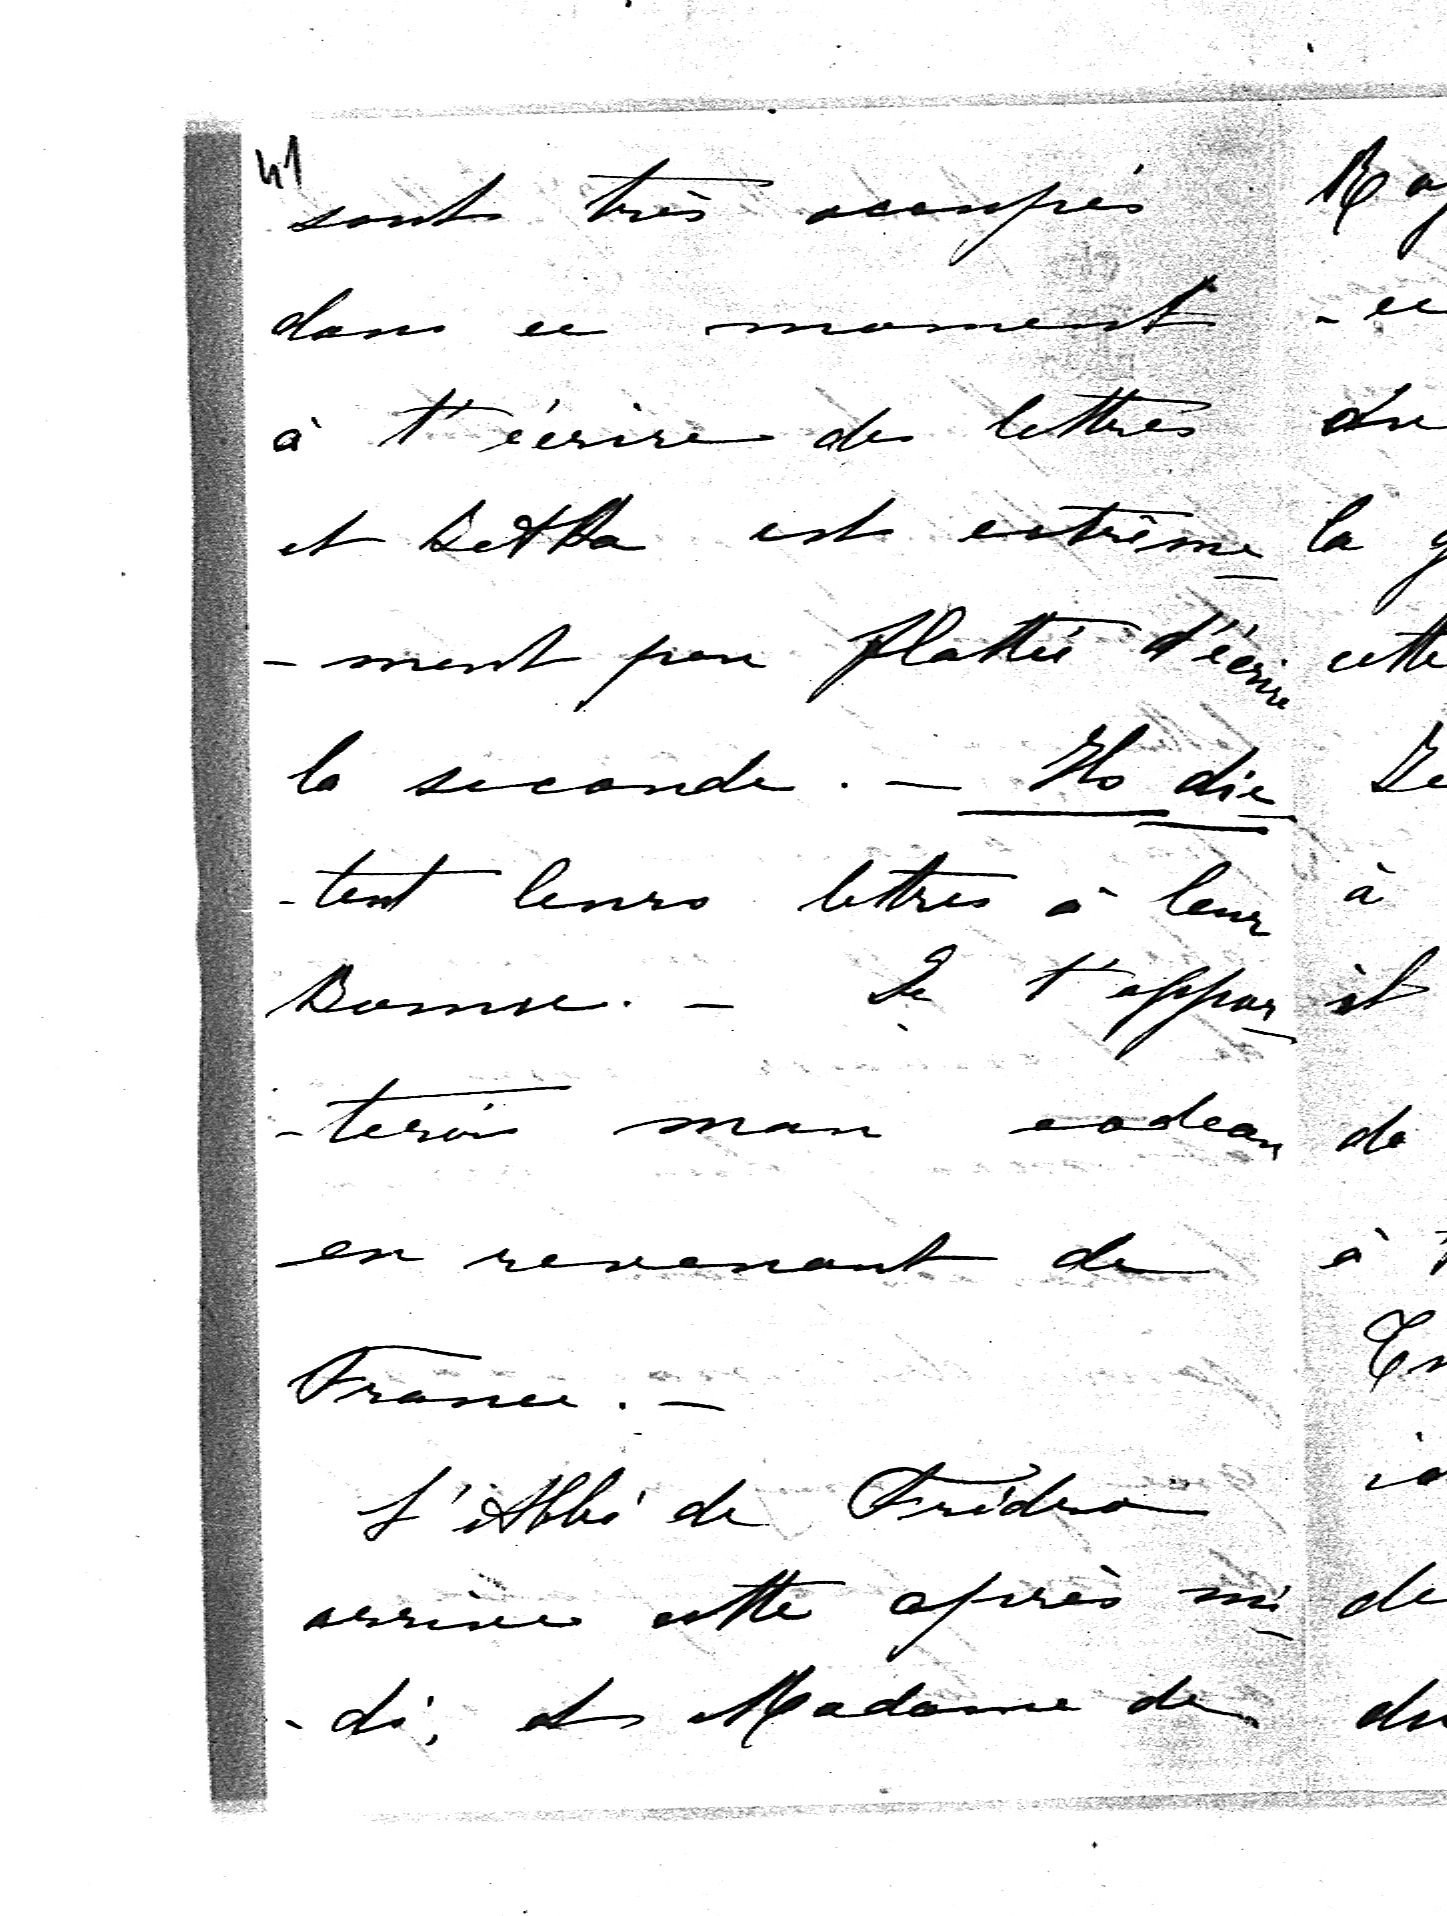 41
sont très occupés
dans ce moment
à t'écrire des lettres
et Betka est extrême
-ment peu flattée d'écrire
la seconde. — Ils dic
-tent leurs lettres à leur
Bonne. — Je t'appor
-terais mon cadeau
en revenant de
France. —
L'Abbé de Frédro
arrive cette après mi
-di, et Madame de
la
cette
à
de
à
de